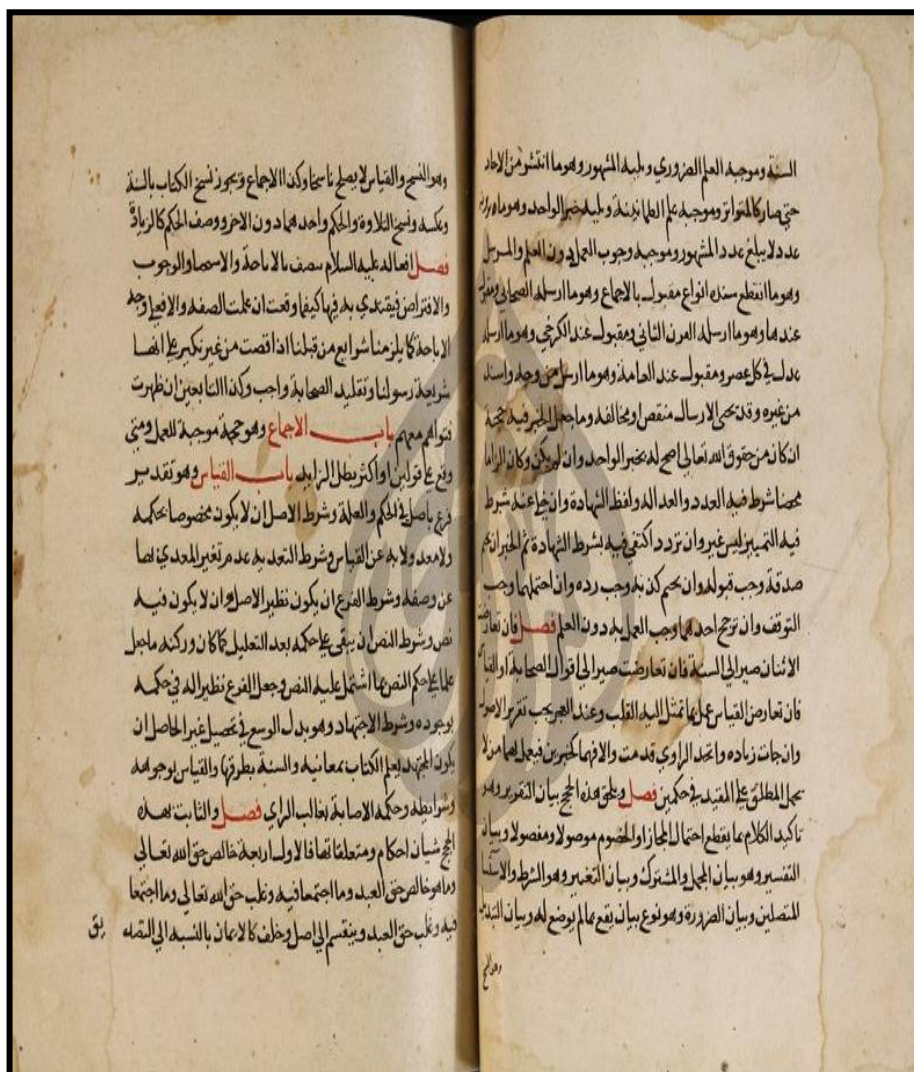 السنة وموجبه العلم الضروري ويليه المشهور وهو ما انتشر من الاحاد
حتى صار كالمتواتر وموجبه علم الطمانينة ويليه خبر الواحد وهو ما
عدد لا يبلغ عدد المشهور وموجبه وجوب العمل دون العلم والمرسل
وهو ما انقطع سنده انواع مقبول بالاجماع وهو ما ارسله الصحابي ومقبول
عندهما وهو ما ارسله القرن الثاني ومقبول عند الكرخي وهو ما ارسله
عدل في كل عصر ومقبول عند العامة وهو ما ارسل من وجه واسند
من غيره وقد يجي الارسال منقص او مخالفه وما جعل الخبر فيه حجة
ان كان من حقوق الله تعالى اصح له بخبر الواحد وان لم يكن وكان الزاما
محضا شرط فيه العدد والعداله ولفظ الشهادة وان خلي عنه شرط
فيه التمييز ليس غير وان تردد اكتفي فيه بشرط الشهادة ثم الخبر ان
صدقه وجب قبوله وان يحم كذبه وجب رده وان احتملهما وجب
التوقف وان ترجح احدهما وجب العمل به دون العلم فصل فان تعارضت
الاثنان صير الى السنة فان تعارضت صير الى اقوال الصحابة او القياس
فان تعارض القياس عمل بما تمثل اليه القلب وعند العجز يجب تقرير الاصول
وان جات زياده واتحد الراوي قدمت والا فهما كخبرين فيعمل بهما من لا
يحمل المطلق على المقيد في حكمين فصل ويلحق هذه الحجج بيان التقرير وهو
تاكيد الكلام بما يقطع احتمال المجاز او الخصوم موصولا ومفصولا وبيان
التفسير وهو بيان المجمل والمشترك وبيان التغيير وهو الشرط والاستثنا
المتصلين وبيان الضرورة وهو نوع بيان يقع بما لم يوضع له وبيان التبديل
وهو النسخ
وهو النسخ والقياس لا يصلح ناسخا وكذا الاجماع ويجوز نسخ الكتاب بالسنة
وعكسه ونسخ التلاوة والحكم واحدهما دون الاخر ووصف الحكم كالزيادة
فصل افعاله عليه السلام تتصف بالاباحة والاستحباب والوجوب
والافتراض فيقتدي به فيها كيفما وقعت ان علمت الصفه والا فعلى وجه
الاباحة كما يلزمنا شرايع من قبلنا اذا قصت من غير نكير على انها
شريعة رسولنا وتقليد الصحابة واجب وكذا التابعين ان ظهرت
فتواهم معهم باب الاجماع وهو حجة موجبة للعمل ومتى
وقع على قولين او اكثر بطل الزايد باب القياس وهو تقدير
فرع باصل في الحكم والعلة وشرط الاصل ان لا يكون مخصوصا بحكمه
ولا معدولا به عن القياس وشرط التعديه عدم تغير المعدي لها
عن وصفه وشرط الفرع ان يكون نظير الاصل وان لا يكون فيه
نص وشرط النص ان يبقى على حكمه بعد التعليل كما كان وركنه ما جعل
علما على حكم النص بما اشتمل عليه النص وجعل الفرع نظيرا له في حكمه
بوجوده وشرط الاجتهاد وهو بدل الوسع في تحصيل غير الحاصل ان
يكون المجتهد يعلم الكتاب بمعانيه والسنة بطرقها والقياس بوجوهه
وشرايطه وحكمه الاصابة بغالب الراي فصل والثابت بهذه
الحجج شيان احكام ومتعلقاتها فالاول اربعة خالص حق الله تعالى
وما هو خالص حق العبد وما اجتمعا فيه وغلب حق الله تعالى وما اجتمعا
فيه وغلب حق العبد وينقسم الى اصل وخلف كالايمان بالنسبه الى
يق